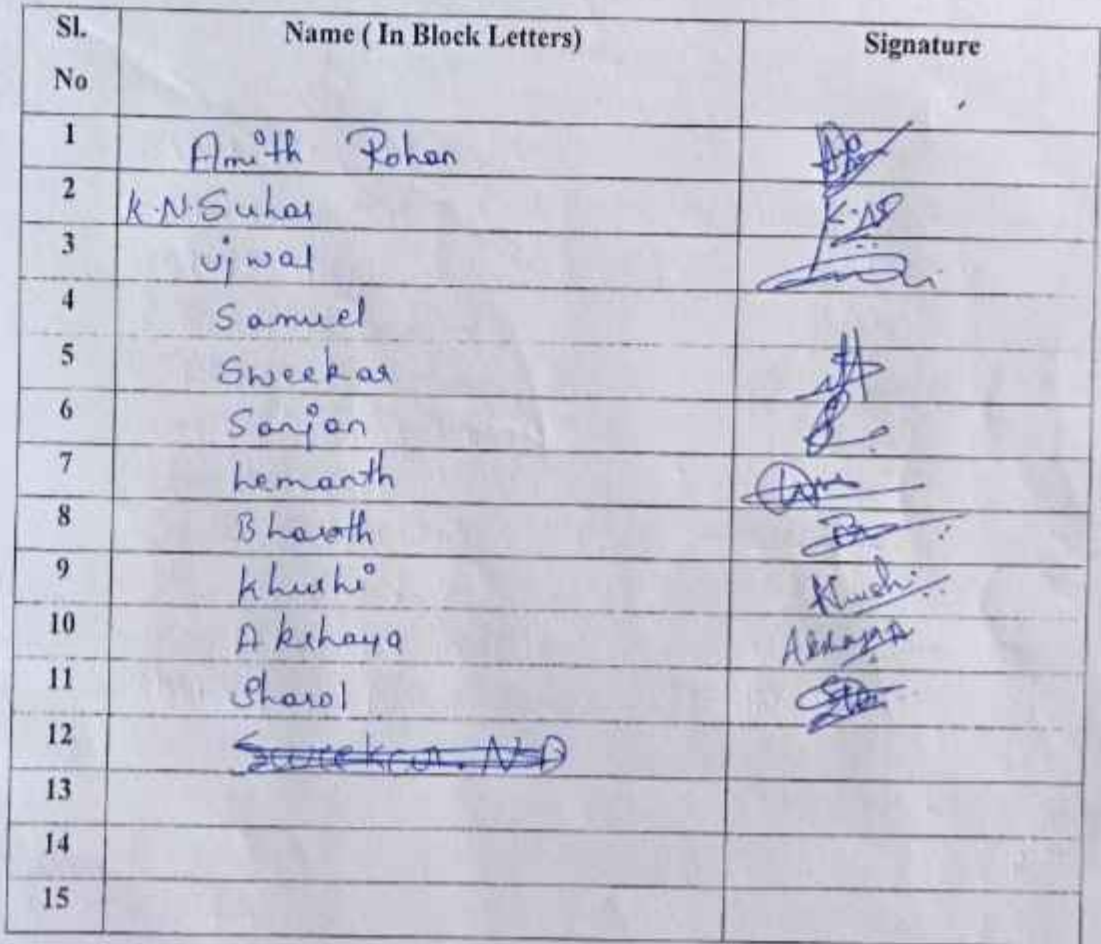 Sl. No Name ( In Block Letters) Signature
1 Amith Rohan
2 K.N.Suhas K.NS
3 ujwal
4 Samuel
5 Sweekar
6 Sanjan
7 hemanth
8 Bharath
9 Khushi Khushi
10 Akshaya Akshaya
11 Sharol
12 Sweekar. N D
13
14
15